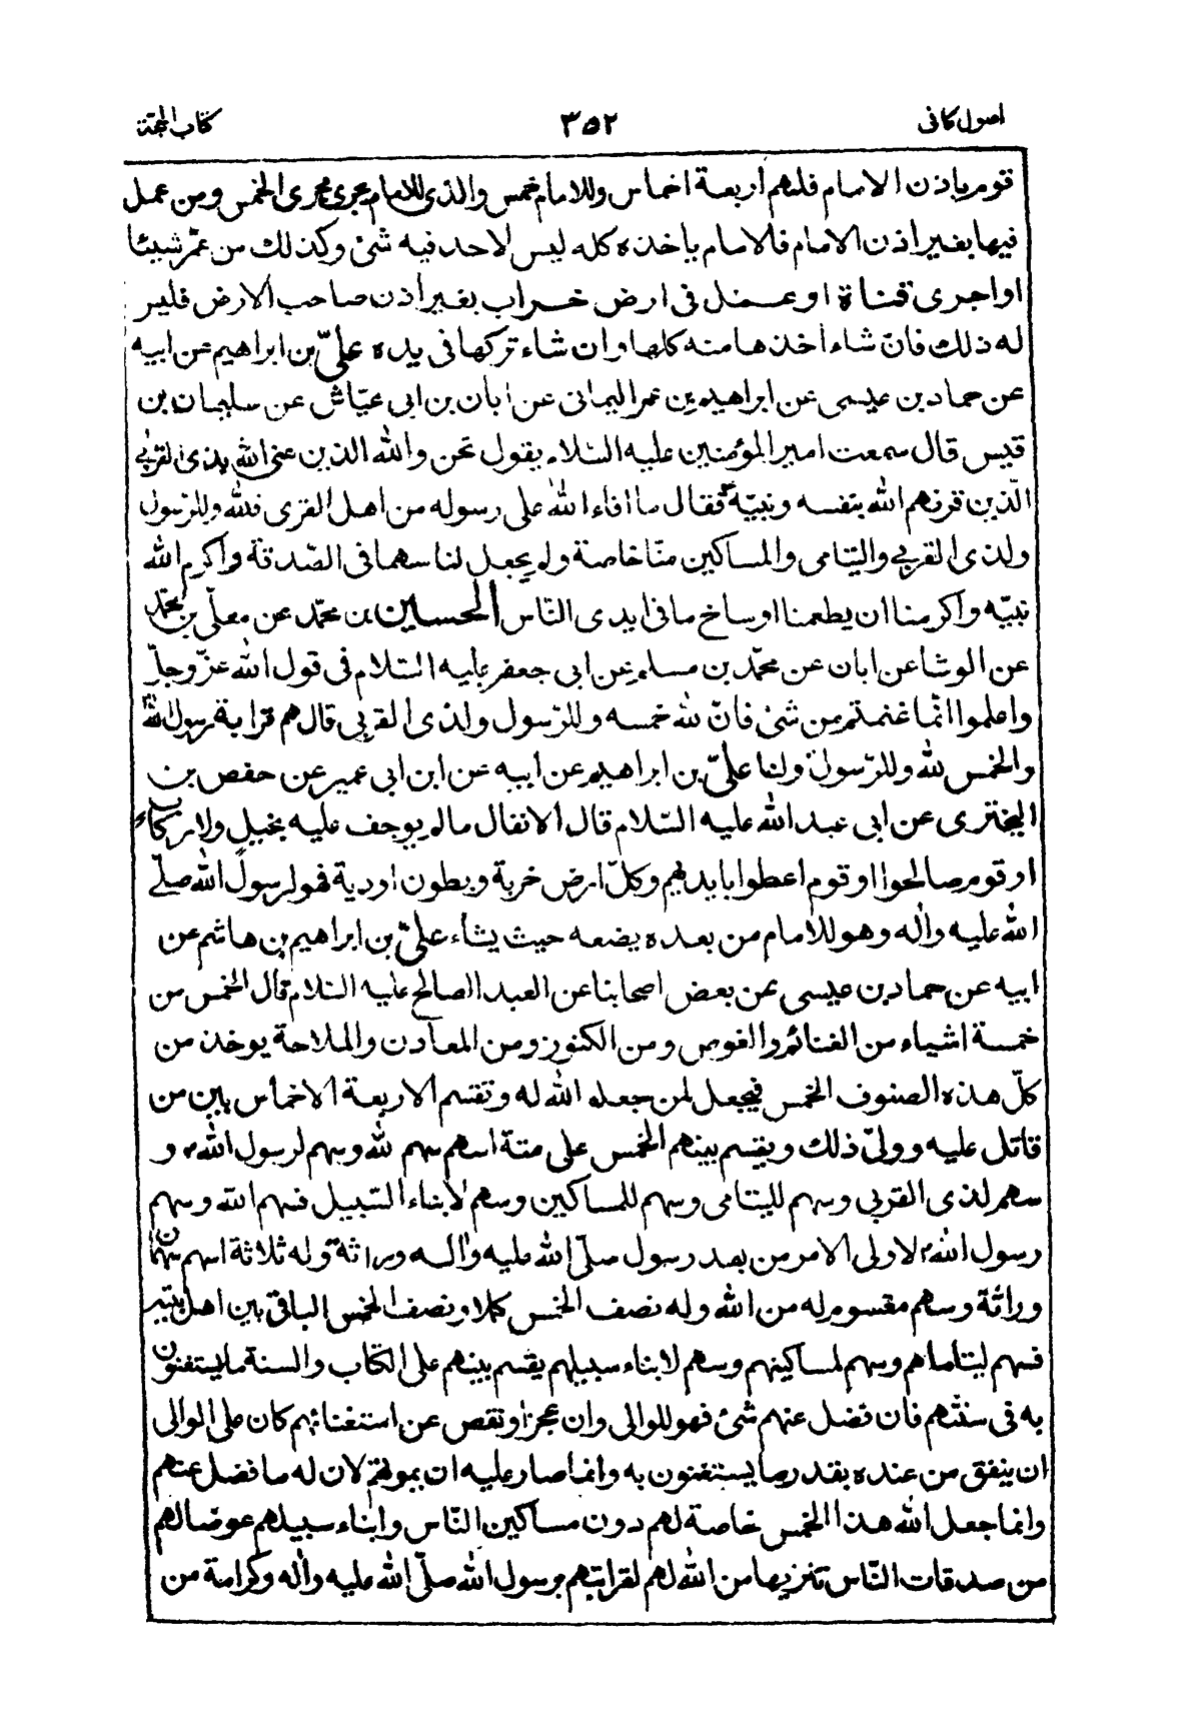 اصول كافى ٣٥٢ كتاب الحجة
قوم باذن الامام فلهم اربعة اخماس وللامام خمس والذى للامام يجرى مجرى الخمس ومن عمل
فيها بغير اذن الامام فالامام ياخذه كله ليس لاحد فيه شئ وكذلك من عمّر شيئا
او اجرى قناة او عمل فى ارض خراب بغير اذن صاحب الارض فليس
له ذلك فان شاء اخذها منه كلها وان شاء تركها فى يده علىّ بن ابراهيم عن ابيه
عن حماد بن عيسى عن ابراهيم بن عمر اليمانى عن ابان بن ابى عيّاش عن سليمان بن
قيس قال سمعت امير المؤمنين عليه السّلام يقول نحن والله الذين عنى الله بذى القربى
الّذين قرنهم الله بنفسه ونبيّه فقال ما افاء الله على رسوله من اهل القرى فلله وللرّسول
ولذى القربى واليتامى والمساكين منّا خاصة ولم يجعل لنا سهما فى الصّدقة واكرم الله
نبيّه واكرمنا ان يطعمنا اوساخ ما فى ايدى النّاس الحسين بن محمّد عن معلّى بن محمّد
عن الوشا عن ابان عن محمّد بن مسلم عن ابى جعفر عليه السّلام فى قول الله عزّ وجلّ
واعلموا انّما غنمتم من شئ فانّ لله خمسه وللرّسول ولذى القربى قال هم قرابة رسول الله
والخمس لله وللرّسول ولنا علىّ بن ابراهيم عن ابيه عن ابن ابى عمير عن حفص بن
البخترى عن ابى عبد الله عليه السّلام قال الانفال ما لم يوجف عليه بخيل ولا ركاب
او قوم صالحوا او قوم اعطوا بايديهم وكلّ ارض خربة وبطون اودية فهو لرسول الله صلّى
الله عليه واله وهو للامام من بعده يضعه حيث يشاء علىّ بن ابراهيم بن هاشم عن
ابيه عن حماد بن عيسى عن بعض اصحابنا عن العبد الصالح عليه السّلام قال الخمس من
خمسة اشياء من الغنائم والغوص ومن الكنوز ومن المعادن والملاحة يوخذ من
كلّ هذه الصنوف الخمس فيجعل لمن جعله الله له وتقسم الاربعة الاخماس بين من
قاتل عليه وولىّ ذلك ويقسم بينهم الخمس على ستة اسهم سهم لله وسهم لرسول الله و
سهم لذى القربى وسهم لليتامى وسهم للمساكين وسهم لابناء السّبيل فسهم الله وسهم
رسول الله لاولى الامر من بعد رسول صلّى الله عليه واله وراثة وله ثلاثة اسهم سهمان
وراثة وسهم مقسوم له من الله وله نصف الخمس كملا ونصف الخمس الباقى بين اهل بيته
فسهم ليتاماهم وسهم لمساكينهم وسهم لابناء سبيلهم يقسم بينهم على الكتاب والسنة ما يستغنون
به فى سنتهم فان فضل عنهم شئ فهو للوالى وان عجز او نقص عن استغنائهم كان على الوالى
ان ينفق من عنده بقدر ما يستغنون به وانما صار عليه ان يمونهم لان له ما فضل عنهم
وانما جعل الله هذا الخمس خاصة لهم دون مساكين النّاس وابناء سبيلهم عوضا لهم
من صدقات النّاس تنزيها من الله لهم لقرابتهم برسول الله صلّى الله عليه واله وكرامة من